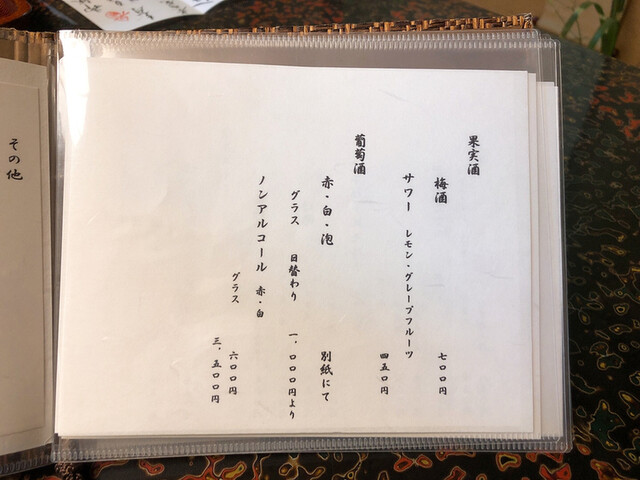 果実酒
梅酒 七〇〇円
サワー レモン・グレープフルーツ 四五〇円
葡萄酒
赤・白・泡 別紙にて
グラス 日替わり 一、〇〇〇円より
ノンアルコール 赤・白
グラス 六〇〇円
三、五〇〇円
その他